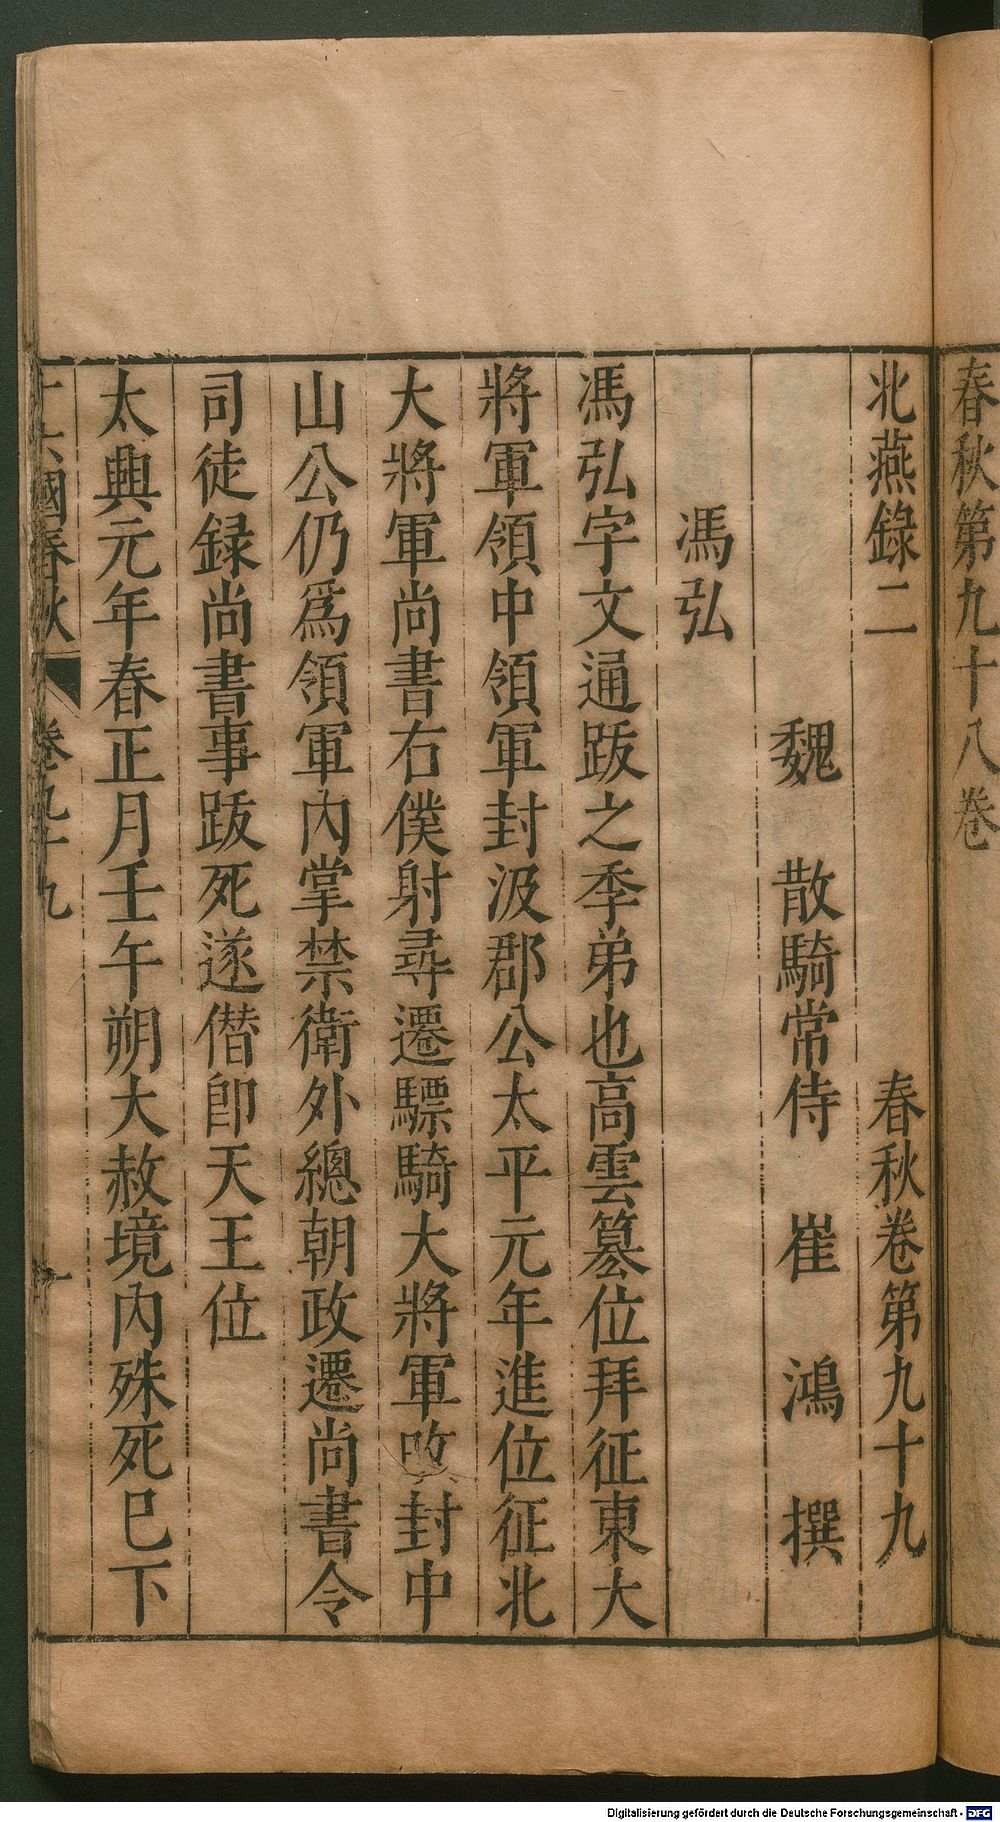 春秋第九十八卷
北燕錄二　春秋卷第九十九
魏　散騎常侍　崔　鴻　撰
馮弘
馮弘字文通跋之季弟也高雲篡位拜征東大
將軍領中領軍封汲郡公太平元年進位征北
大將軍尚書右僕射尋遷驃騎大將軍改封中
山公仍爲領軍內掌禁衛外總朝政遷尚書令
司徒録尚書事跋死遂僣卽天王位
太興元年春正月壬午朔大赦境內殊死巳下
十六國春秋　卷九十九　一
Digitalisierung gefördert durch die Deutsche Forschungsgemeinschaft - DFG